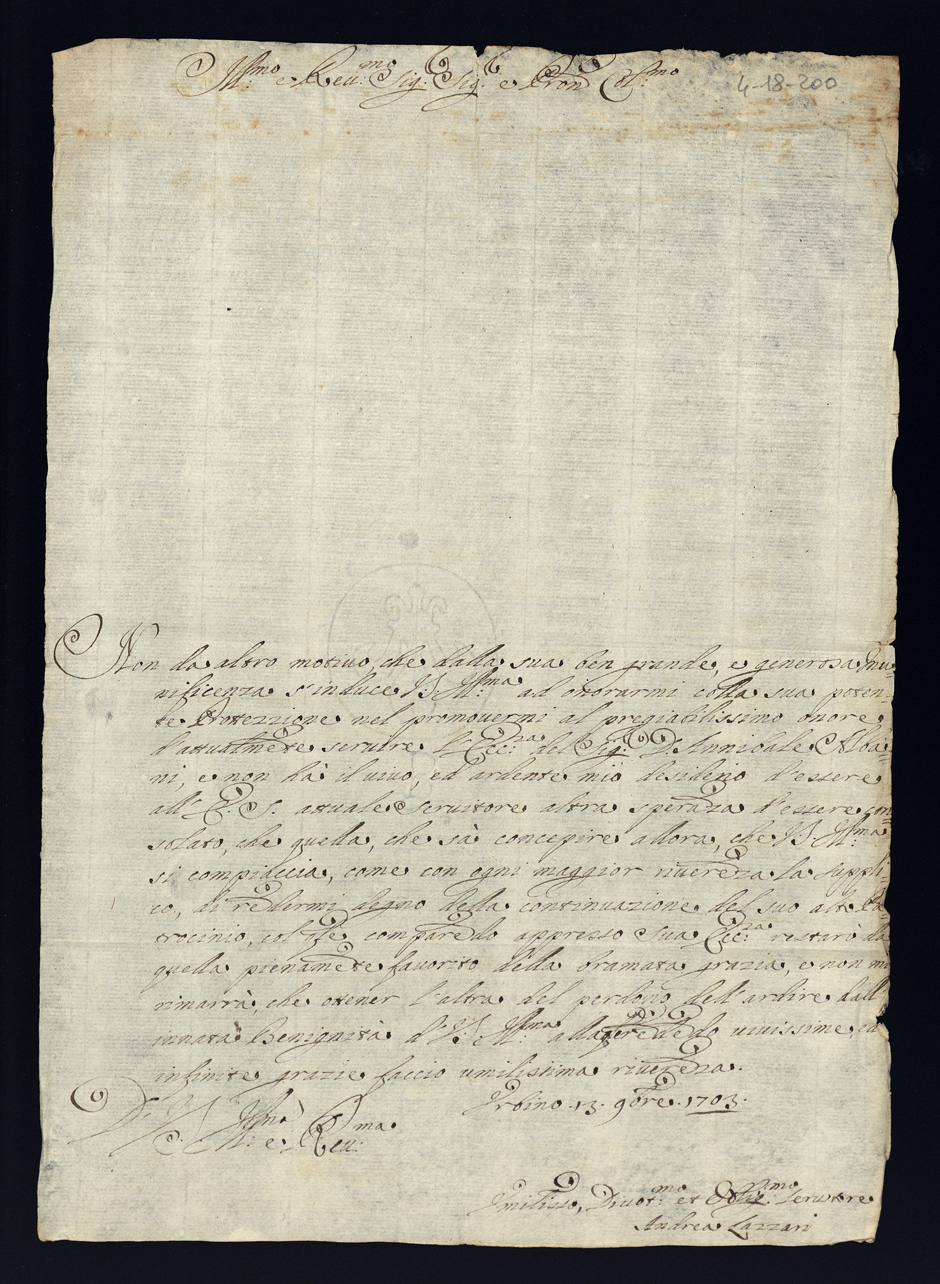 Ill.mo e Reu.mo Sig. Sig. e Pron Col.mo
4-18-200
Non da altro motivo, che dalla sua ben grande, e generosa Mu
nificenza s'induce V.S. Ill.ma ad onorarmi colla sua poten
te Protezzione nel promovermi al pregiabilissimo onore
d'attualmẽte servire l'Ecc.za del Sig. D. Annibale Alba
ni, e non hà il vivo, ed ardente mio desiderio d'essere
all' E. S. attuale Servitore altra sperãza d'essere con
solato, che quella, che sà concepire allora, che V.S. Ill.ma
si compiaccia, come con ogni maggior riverẽza la suppli
co, di rẽdermi degno della continuazione del suo alto Pa
trocinio, col comparẽdo appresso Sua Ecc.za restarò da
quella pienamẽte favorito della bramata grazia, e non mi
rimarrà, che otener l'altra del perdono dell'ardire dall'
innata Benignità d'V.S. Ill.ma alla rẽdẽdo vivissime, ed
infinite grazie faccio umilissima riverẽza.
Urbino .13. 9bre. 1703.
Di V.S. Ill.ma e Reu.ma
Umiliss.o, Divot.mo et Oblig.mo Servitore
Andrea Lazzari